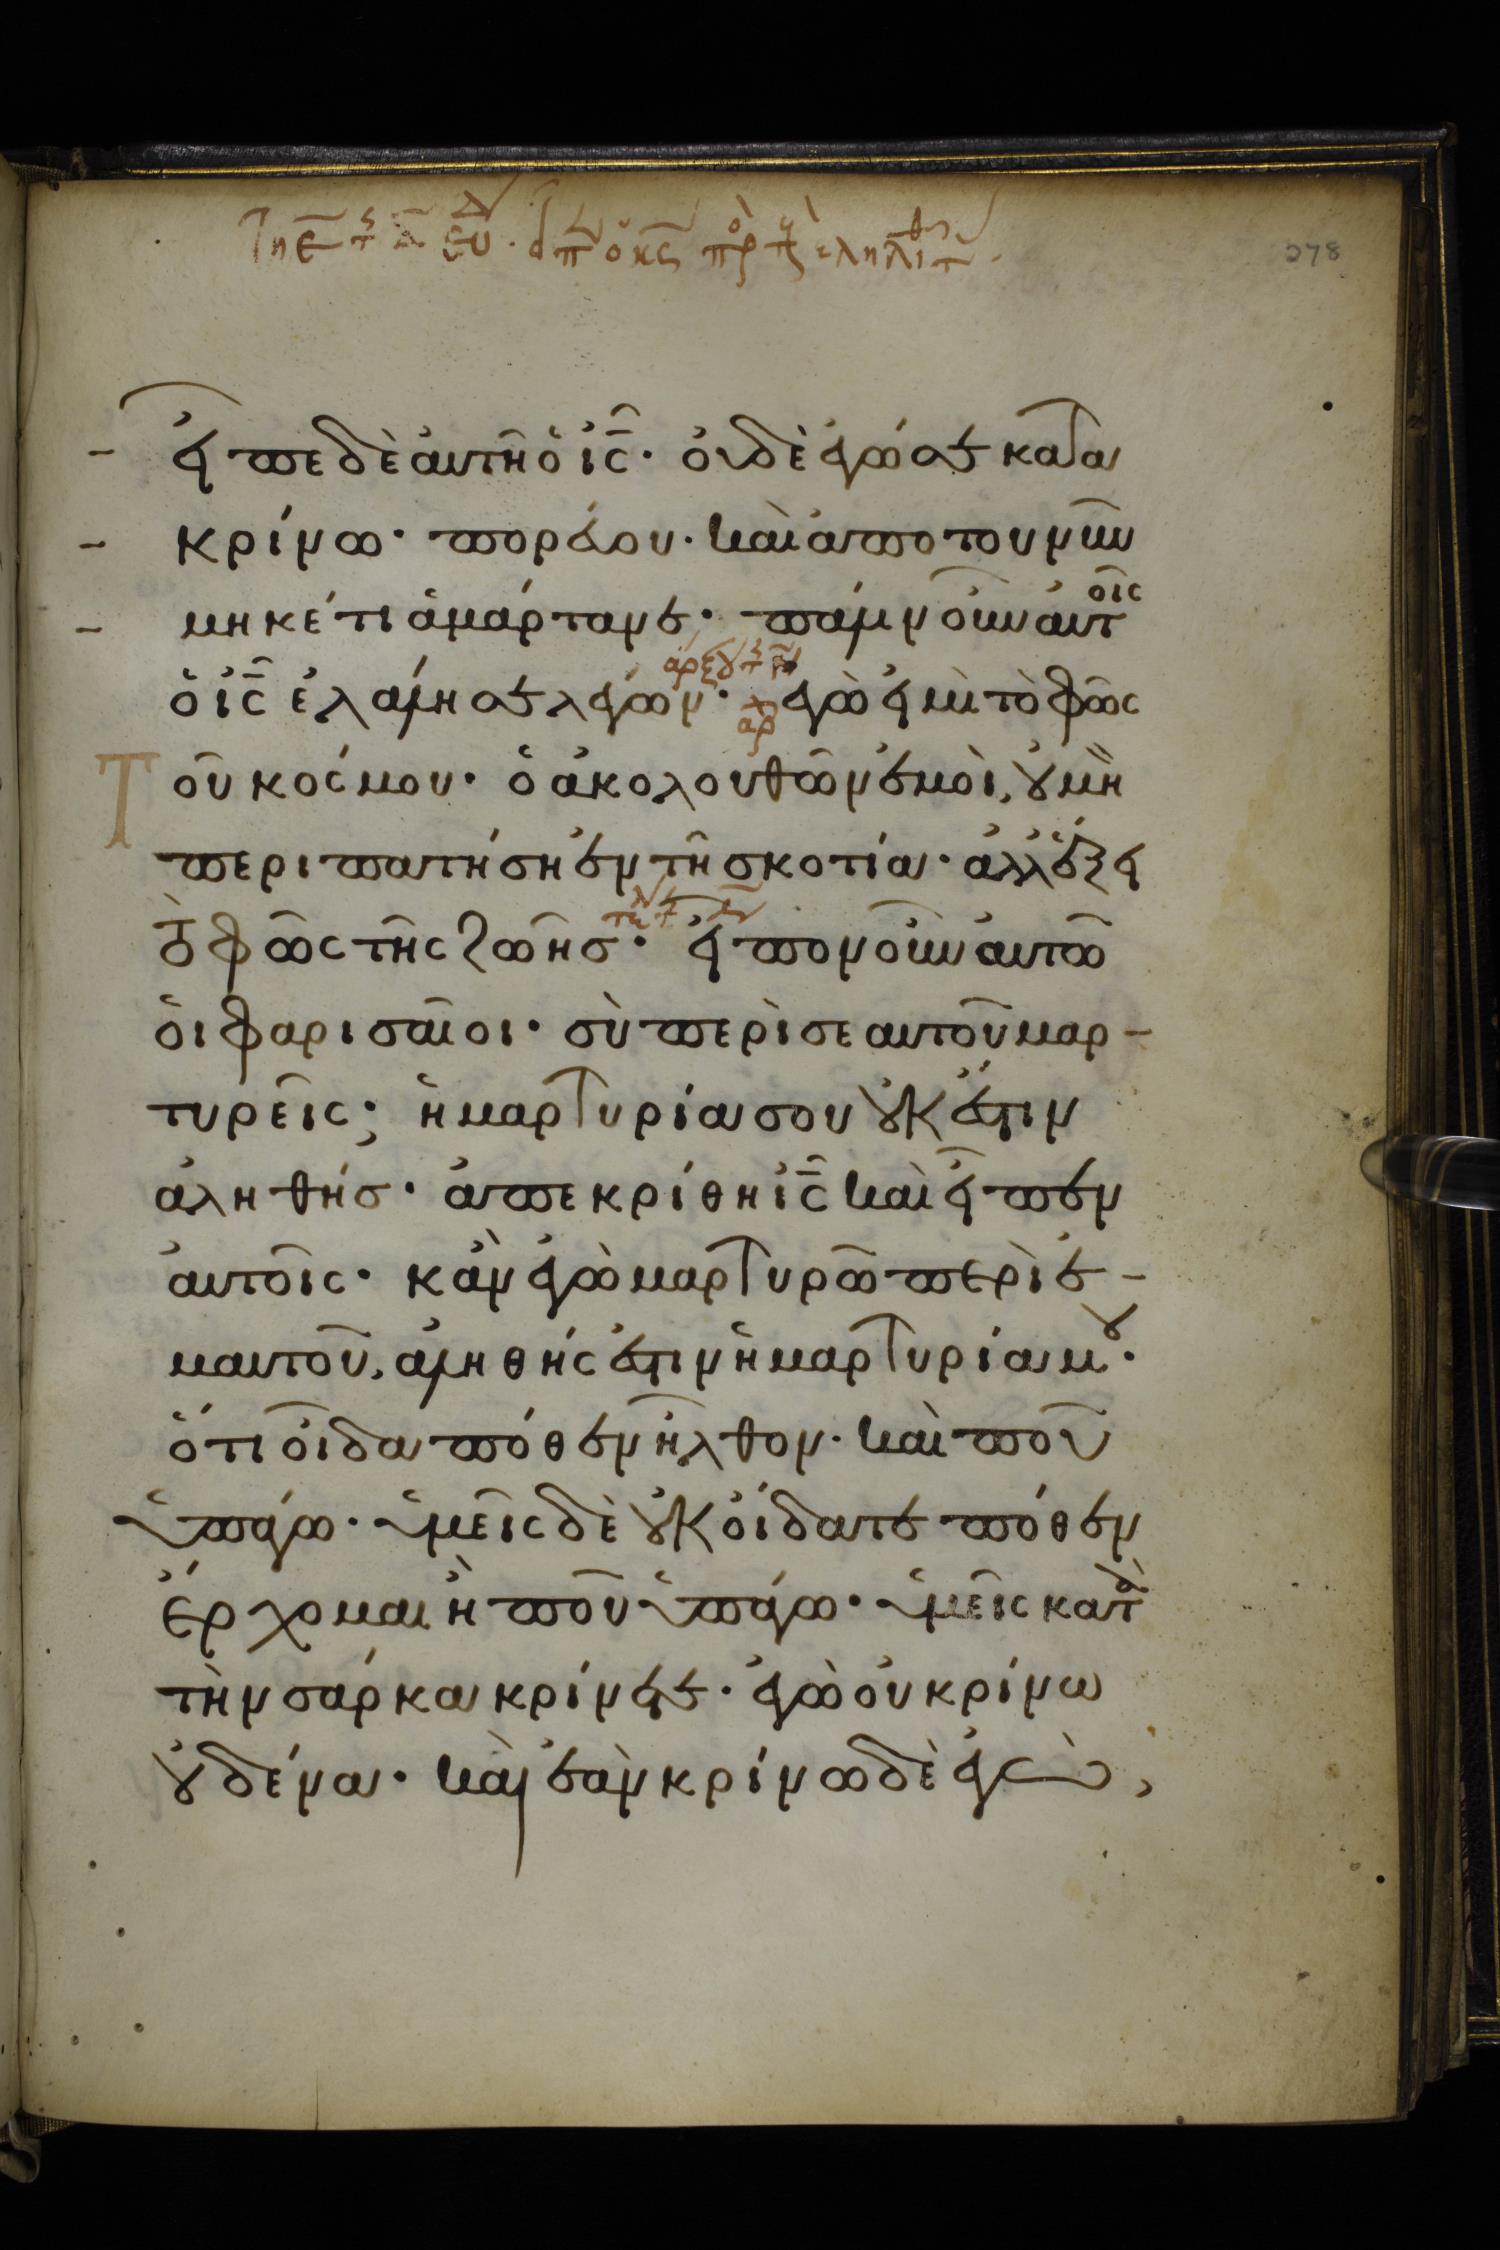 εἶπε δὲ αὐτῆ ὁ ις̅· οὐδὲ ἐγώ σε κατα
κρίνω· πορεύου· καὶ ἀπο του νῦν
μηκέτι ἁμάρτανε· πάλιν οὖν αὐτοῖς
ὁ ις̅ ἐλάλησε λέγων· ἐγὼ εἰμὶ τὸ φῶς
τοῦ κόσμου· ὁ ἀκολουθῶν ἐμοὶ, οὐ μὴ
περιπατήση ἐν τῆ σκοτία· ἀλλ' ἕξει
τὸ φῶς τῆς ζωῆς· εἶπον οὖν αὐτῶ
οἱ φαρισαῖοι· σὺ περὶ σεαυτοῦ μαρ-
τυρεῖς; ἡ μαρτυρία σου οὐκ ἔστιν
ἀληθής· ἀπεκρίθη ις̅ καὶ εἶπεν
αὐτοῖς· κἂν ἐγὼ μαρτυρῶ περὶ ἐ-
μαυτοῦ, ἀληθής ἐστιν ἡ μαρτυρία μου·
ὅτι οἶδα πόθεν ἦλθον· καὶ ποῦ
ὑπάγω· ὑμεῖς δὲ οὐκ οἴδατε πόθεν
ἔρχομαι ἢ ποῦ ὑπάγω· ὑμεῖς κατὰ
τὴν σάρκα κρίνετε· ἐγὼ οὐ κρίνω
οὐδένα· καὶ ἐὰν κρίνω δὲ ἐγὼ,
278